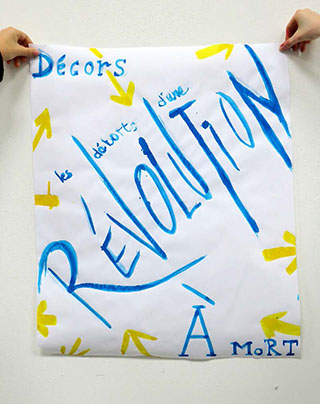 Décors
les décorts d'une
RÉVOLUTION
À MORT